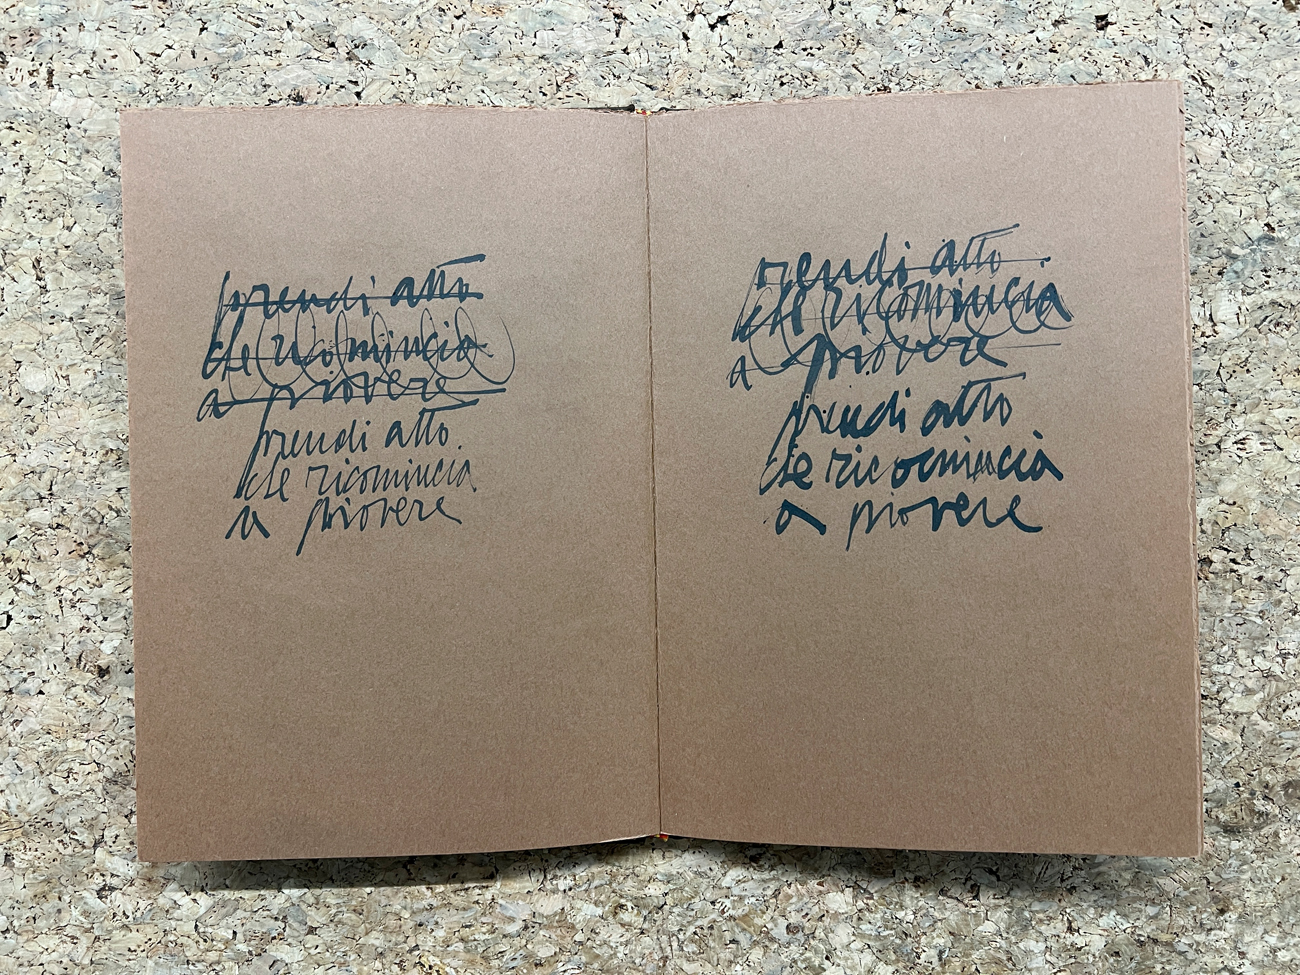 prendi atto
che ricomincia
a piovere
prendi atto.
che ricomincia
a piovere
rendi atto
che ricomincia
a piovere
prendi atto
che ricomincia
a piovere